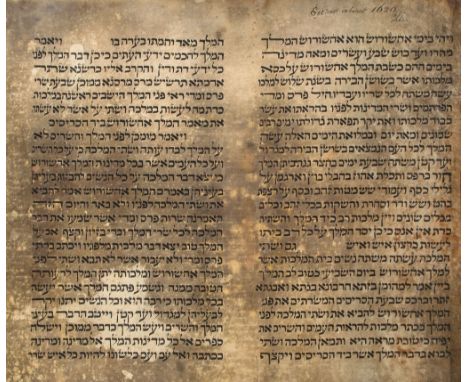 about 1620
ויהי בימי אחשורוש הוא אחשורוש המלך
מהדו ועד כוש שבע ועשרים ומאה מדינה
בימים ההם כשבת המלך אחשורוש על כסא
מלכותו אשר בשושן הבירה בשנת שלוש למלכו
עשה משתה לכל שריו ועבדיו חיל פרס ומדי
הפרתמים ושרי המדינות לפניו בהראתו את עשר
כבוד מלכותו ואת יקר תפארת גדולתו ימים רבים
שמונים ומאת יום ובמלואת הימים האלה עשה
המלך לכל העם הנמצאים בשושן הבירה למגדול
ועד קטן משתה שבעת ימים בחצר גנת ביתן המלך
חור כרפס ותכלת אחוז בחבלי בוץ וארגמן על
גלילי כסף ועמודי שש מטות זהב וכסף על רצפת
בהט ושש ודר וסחרת והשקות בכלי זהב וכלים
מכלים שונים ויין מלכות רב כיד המלך והשתיה
כדת אין אנס כי כן יסד המלך על כל רב ביתו
לעשות כרצון איש ואיש גם ושתי
המלכה עשתה משתה נשים בית המלכות אשר
למלך אחשורוש ביום השביעי כטוב לב המלך
ביין אמר למהומן בזתא חרבונא בגתא ואבגתא
זתר וכרכס שבעת הסריסים המשרתים את פני
המלך אחשורוש להביא את ושתי המלכה לפני
המלך בכתר מלכות להראות העמים והשרים את
יפיה כי טובת מראה היא ותמאן המלכה ושתי
לבוא בדבר המלך אשר ביד הסריסים ויקצף
המלך מאד וחמתו בערה בו ויאמר
המלך לחכמים ידעי העתים כי כן דבר המלך לפני
כל ידעי דת ודין והקרב אליו כרשנא שתר אדמתא
תרשיש מרס מרסנא ממוכן שבעת שרי
פרס ומדי ראי פני המלך הישבים ראשנה במלכות
כדת מה לעשות במלכה ושתי על אשר לא עשתה
את מאמר המלך אחשורוש ביד הסריסים
ויאמר מומכן לפני המלך והשרים לא
על המלך לבדו עותה ושתי המלכה כי על כל השרים
ועל כל העמים אשר בכל מדינות המלך אחשורוש
כי יצא דבר המלכה על כל הנשים להבזות בעליהן
בעיניהן באמרם המלך אחשורוש אמר להביא
את ושתי המלכה לפניו ולא באה והיום הזה
תאמרנה שרות פרס ומדי אשר שמעו את דבר
המלכה לכל שרי המלך וכדי בזיון וקצף אם על
המלך טוב יצא דבר מלכות מלפניו ויכתב בדתי
פרס ומדי ולא יעבור אשר לא תבוא ושתי לפני
המלך אחשורוש ומלכותה יתן המלך לרעותה
הטובה ממנה ונשמע פתגם המלך אשר יעשה
בכל מלכותו כי רבה היא וכל הנשים יתנו יקר
לבעליהן למגדול ועד קטן וייטב הדבר בעיני
המלך והשרים ויעש המלך כדבר ממוכן וישלח
ספרים אל כל מדינות המלך אל מדינה ומדינה
ככתבה ואל עם ועם כלשונו להיות כל איש שרר